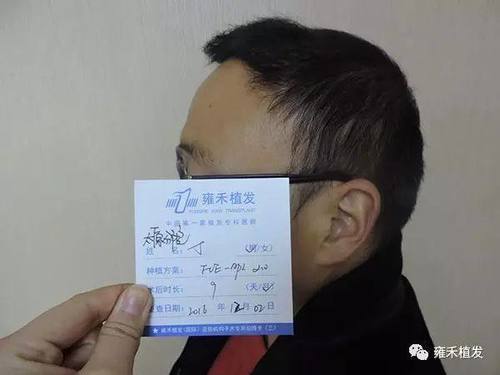 雍禾植发
YONGHE HAIR TRANSPLANT
中国第一家植发专科医院
太原分院
姓 名：丁 （男/女）
种植方案：FUE-APL 2.0
术后时长：9 （天/月）
复查日期：2016 年 12 月 02 日
雍禾植发